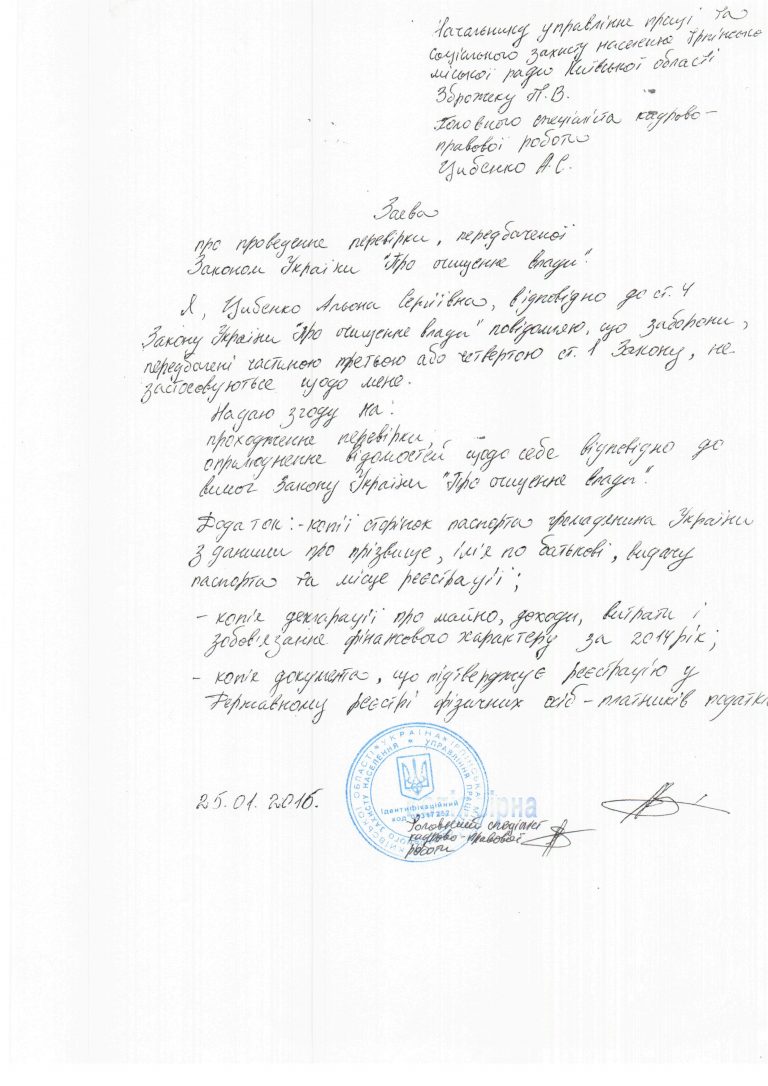 Начальнику управління праці та
соціального захисту населення Ірпінсько
міської ради Київської області
Зброжеку П.В.
Головного спеціаліста кадрово-
правової роботи
Цибенко А.С.
Заява
про проведення перевірки, передбаченої
Законом України "Про очищення влади".
Я, Цибенко Альона Сергіївна, відповідно до ст. 4
Закону України "Про очищення влади" повідомляю, що заборони,
передбачені частиною третьою або четвертою ст. 1 Закону, не
застосовуються щодо мене.
Надаю згоду на:
проходження перевірки;
оприлюднення відомостей щодо себе відповідно до
вимог Закону України "Про очищення влади".
Додаток: - копії сторінок паспорта громадянина України
з даними про прізвище, ім'я по батькові, видачу
паспорта та місце реєстрації;
- копія декларації про майно, доходи, витрати і
зобов'язання фінансового характеру за 2014 рік;
- копія документа, що підтверджує реєстрацію у
Державному реєстрі фізичних осіб - платників податкі
25.01.2016.
УКРАЇНА
КИЇВСЬКОЇ ОБЛАСТІ
УПРАВЛІННЯ ПРАЦІ
ЗАХИСТУ НАСЕЛЕННЯ
Ідентифікаційний
код
Головний спеціаліст
кадрово-правової
роботи